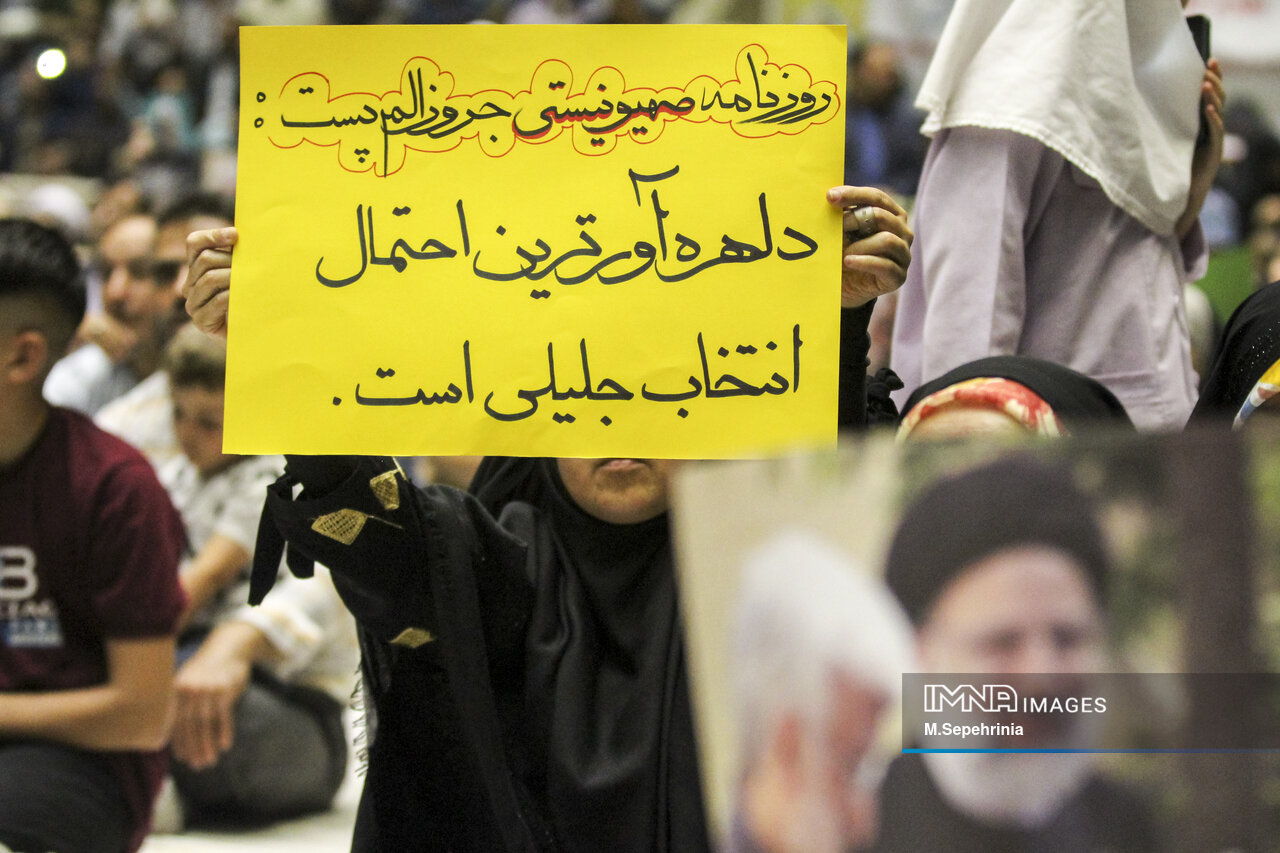 روزنامه صهیونیستی جروزالم پست:
دلهره‌آورترین احتمال
انتخاب جلیلی است.
IMNA IMAGES
M.Sepehrinia